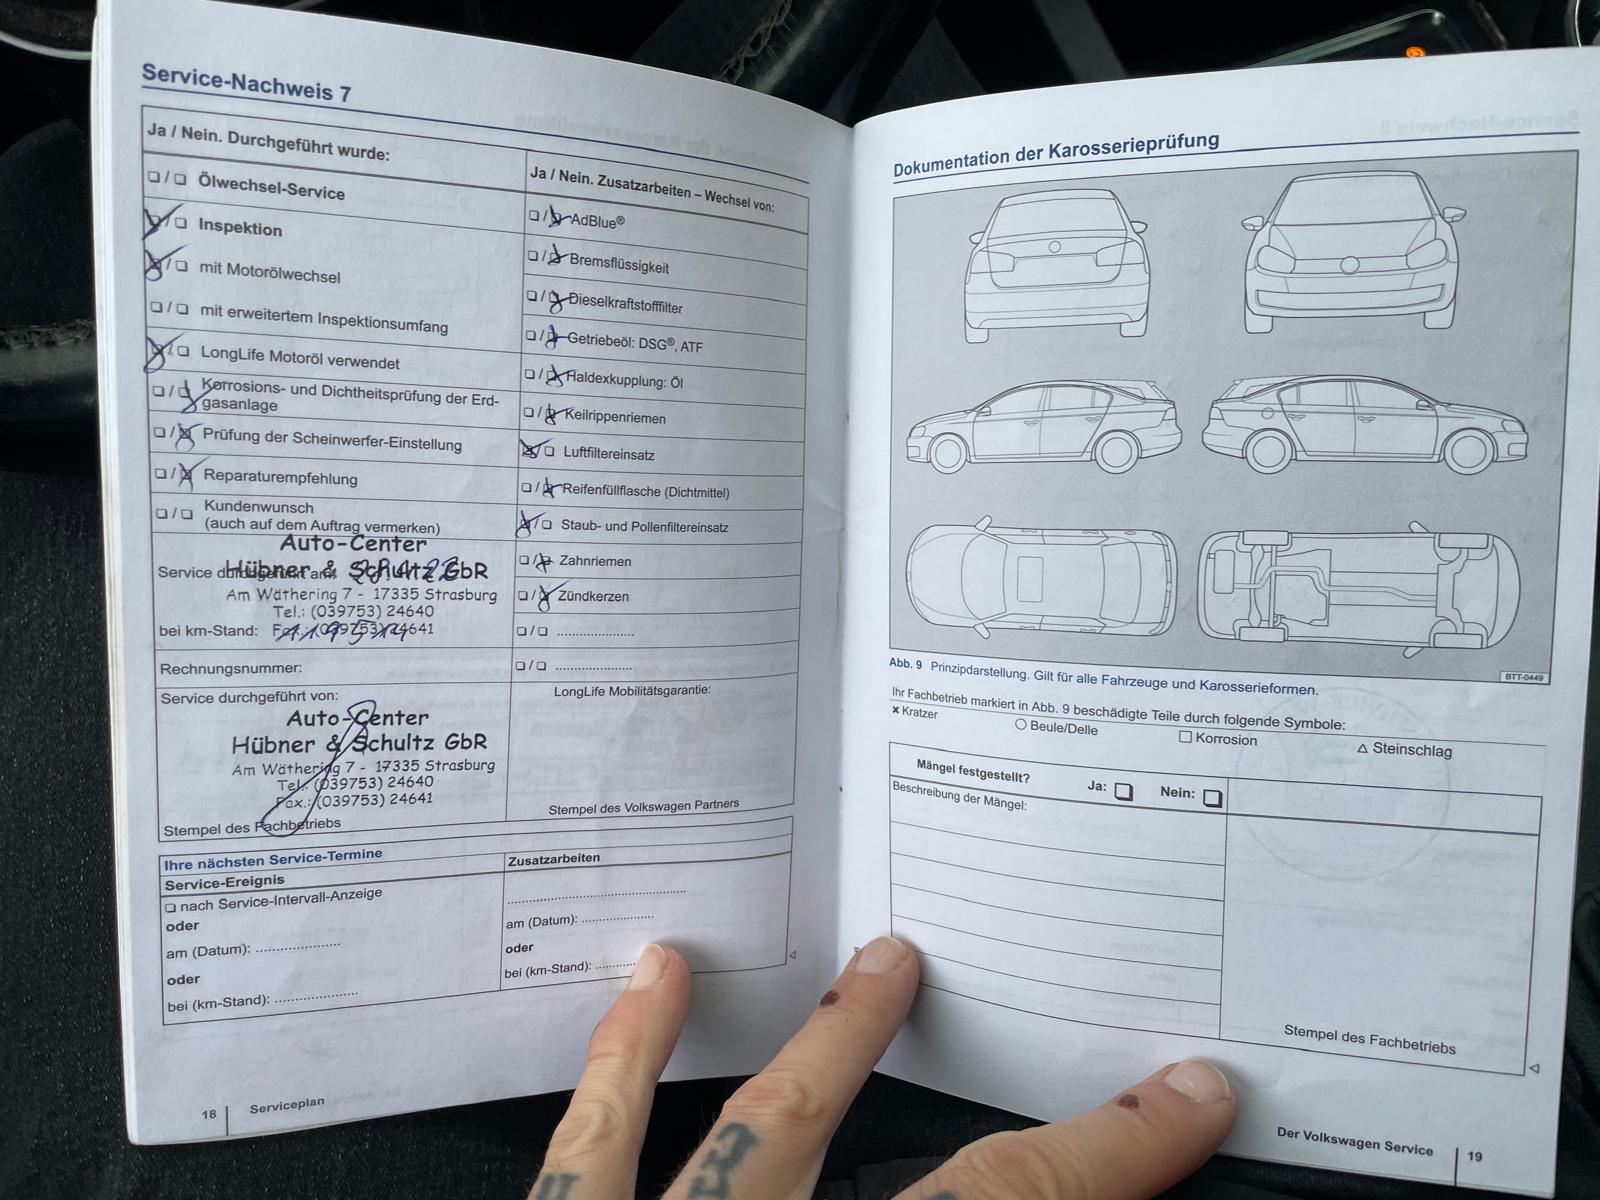 Service-Nachweis 7
Ja / Nein. Durchgeführt wurde:
❏ / ❏ Ölwechsel-Service
❏ / ❏ Inspektion
❏ / ❏ mit Motorölwechsel
❏ / ❏ mit erweitertem Inspektionsumfang
❏ / ❏ LongLife Motoröl verwendet
❏ / ❏ Korrosions- und Dichtheitsprüfung der Erd-
gasanlage
❏ / ❏ Prüfung der Scheinwerfer-Einstellung
❏ / ❏ Reparaturempfehlung
❏ / ❏ Kundenwunsch
(auch auf dem Auftrag vermerken)
Auto-Center
Hübner & Schultz GbR
Service durchgeführt am:
Am Wäthering 7 - 17335 Strasburg
Tel.: (039753) 24640
bei km-Stand:
Fax.: (039753) 24641
Rechnungsnummer:
Service durchgeführt von:
Auto-Center
Hübner & Schultz GbR
Am Wäthering 7 - 17335 Strasburg
Tel.: (039753) 24640
Fax.: (039753) 24641
Stempel des Fachbetriebs
Ja / Nein. Zusatzarbeiten – Wechsel von:
❏ / ❏ AdBlue®
❏ / ❏ Bremsflüssigkeit
❏ / ❏ Dieselkraftstofffilter
❏ / ❏ Getriebeöl: DSG®, ATF
❏ / ❏ Haldexkupplung: Öl
❏ / ❏ Keilrippenriemen
❏ / ❏ Luftfiltereinsatz
❏ / ❏ Reifenfüllflasche (Dichtmittel)
❏ / ❏ Staub- und Pollenfiltereinsatz
❏ / ❏ Zahnriemen
❏ / ❏ Zündkerzen
❏ / ❏ ......................
❏ / ❏ ......................
LongLife Mobilitätsgarantie:
Stempel des Volkswagen Partners
Ihre nächsten Service-Termine
Service-Ereignis
❏ nach Service-Intervall-Anzeige
oder
am (Datum): ......................
oder
bei (km-Stand): ......................
Zusatzarbeiten
..............................................
am (Datum): ...................
oder
bei (km-Stand): ..........
18 Serviceplan
Dokumentation der Karosserieprüfung
BTT-0449
Abb. 9 Prinzipdarstellung. Gilt für alle Fahrzeuge und Karosserieformen.
Ihr Fachbetrieb markiert in Abb. 9 beschädigte Teile durch folgende Symbole:
× Kratzer ○ Beule/Delle □ Korrosion △ Steinschlag
Mängel festgestellt? Ja: ❏ Nein: ❏
Beschreibung der Mängel:
Stempel des Fachbetriebs
Der Volkswagen Service 19